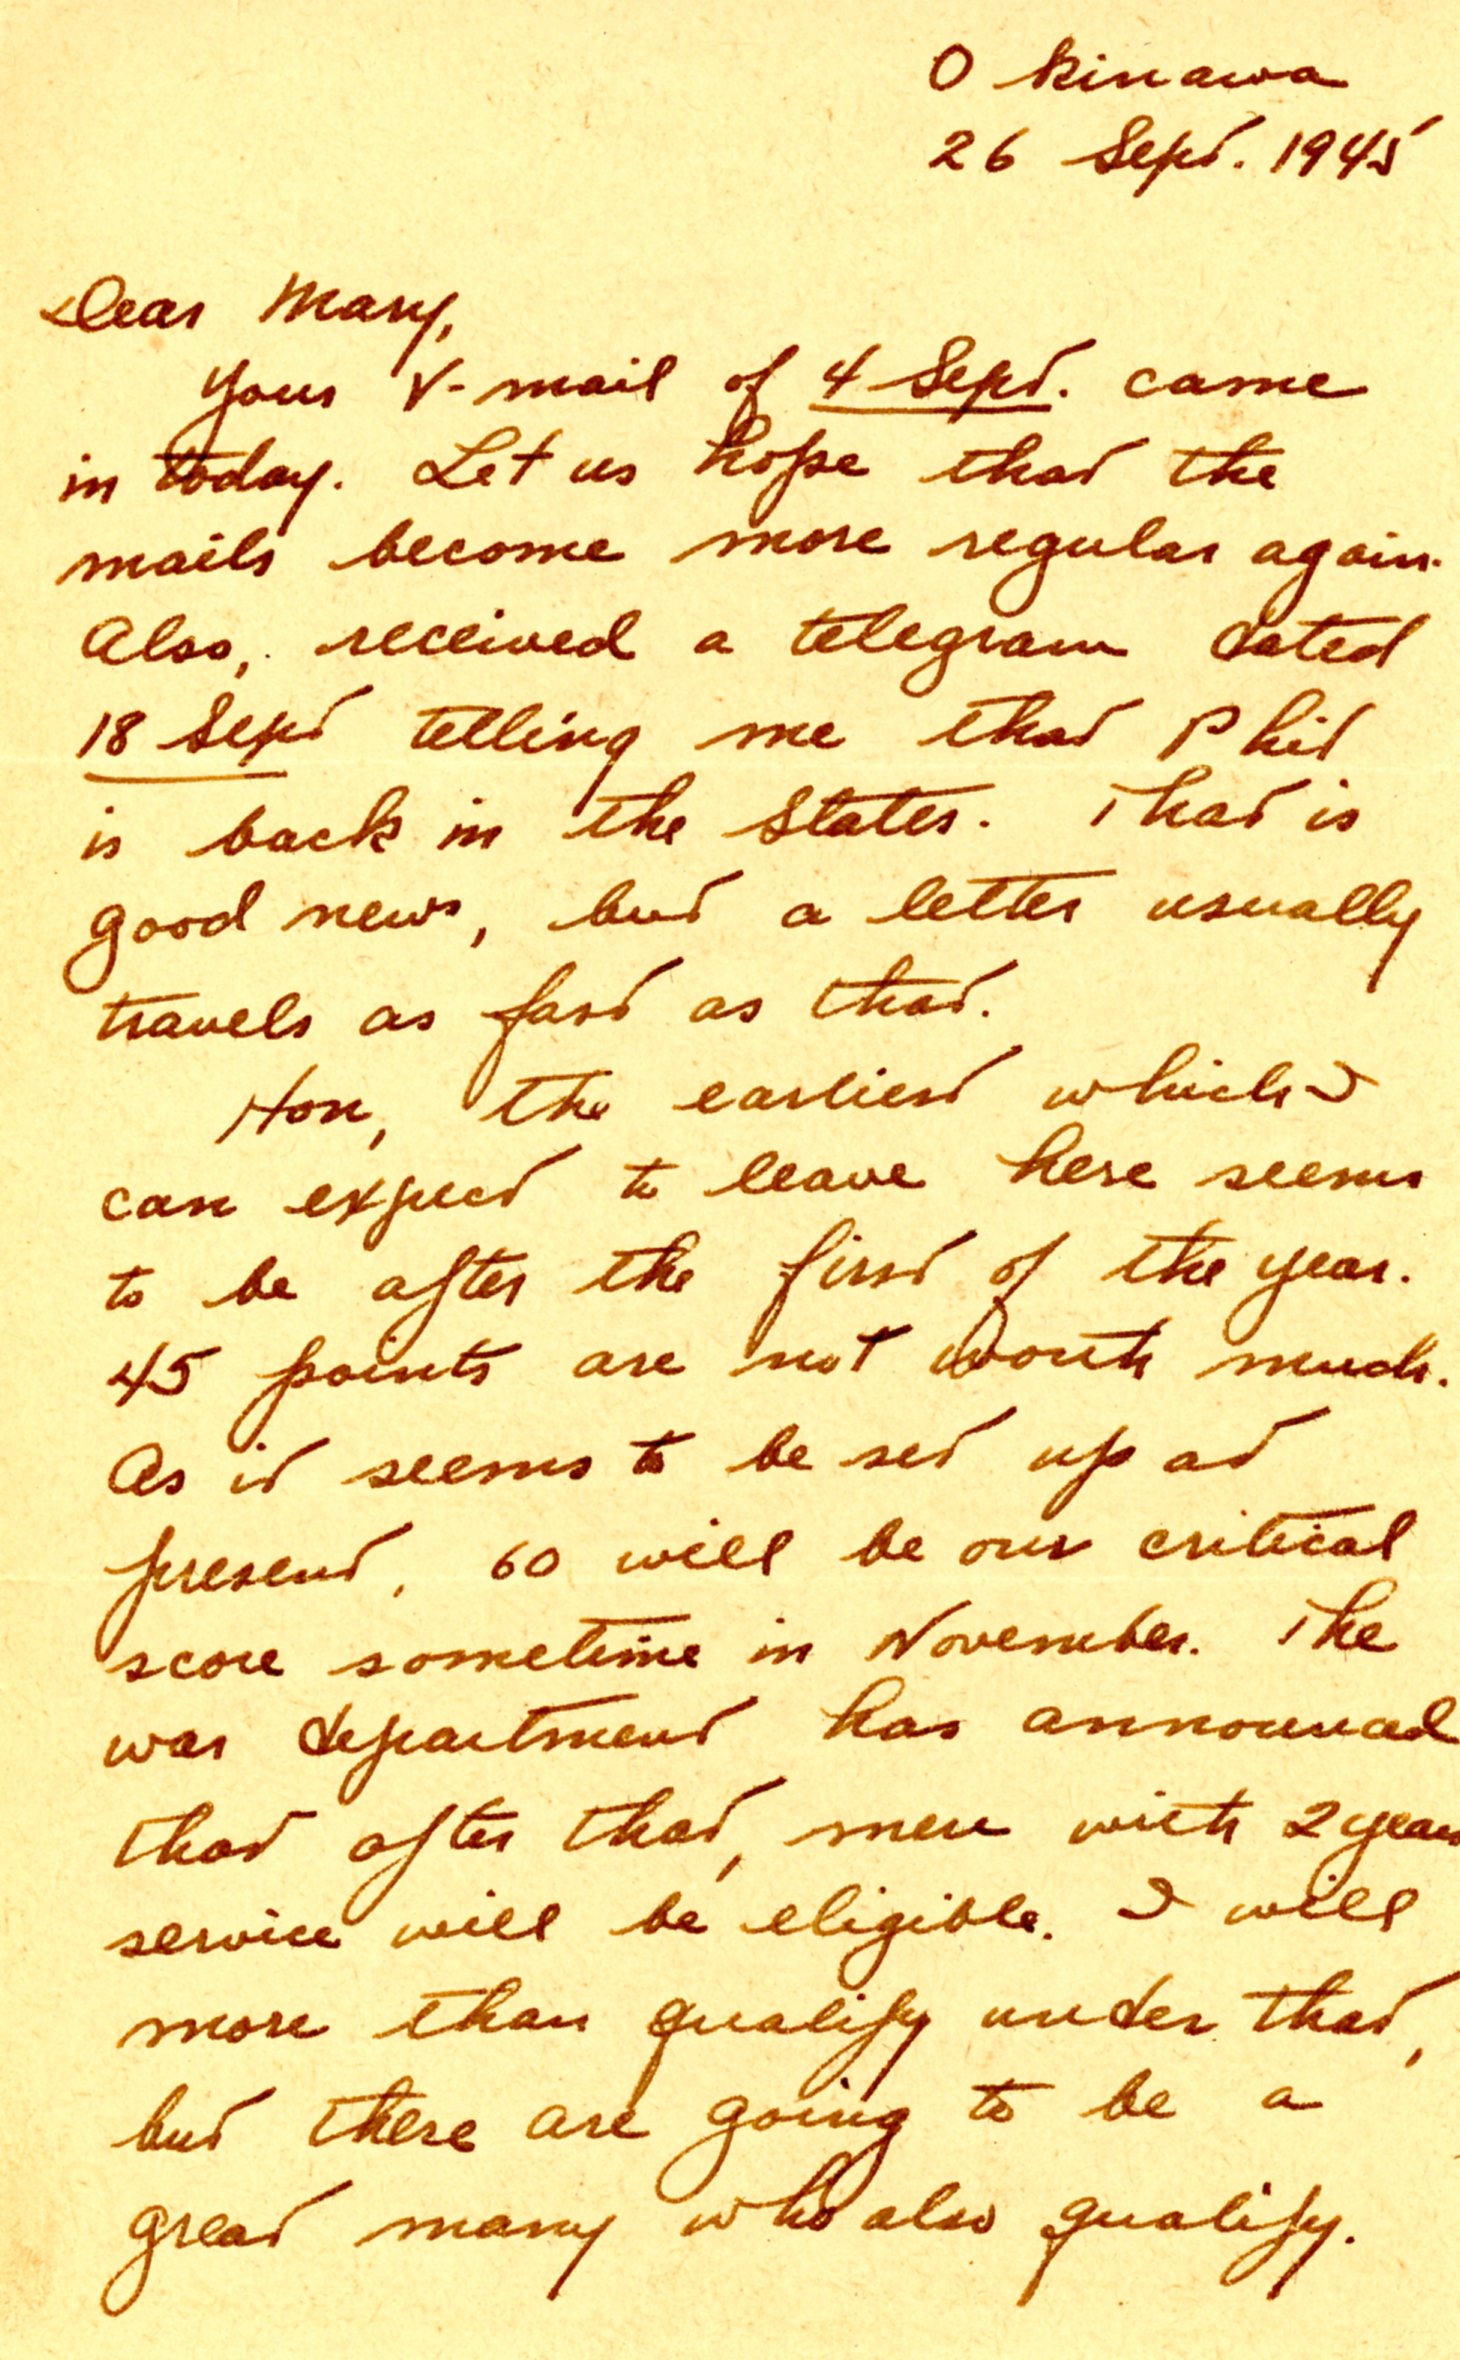 Okinawa
26 Sept. 1945
Dear Mary,
Your V-mail of 4 Sept. came
in today. Let us hope that the
mails become more regular again.
Also, received a telegram dated
18 Sept telling me that Phil
is back in the States. That is
good news, but a letter usually
travels as fast as that.
Hon, the earliest which I
can expect to leave here seems
to be after the first of the year.
45 points are not worth much.
As it seems to be set up at
present, 60 will be our critical
score sometime in November. The
war department has announced
that after that, men with 2 years
service will be eligible. I will
more than qualify under that,
but there are going to be a
great many who also qualify.